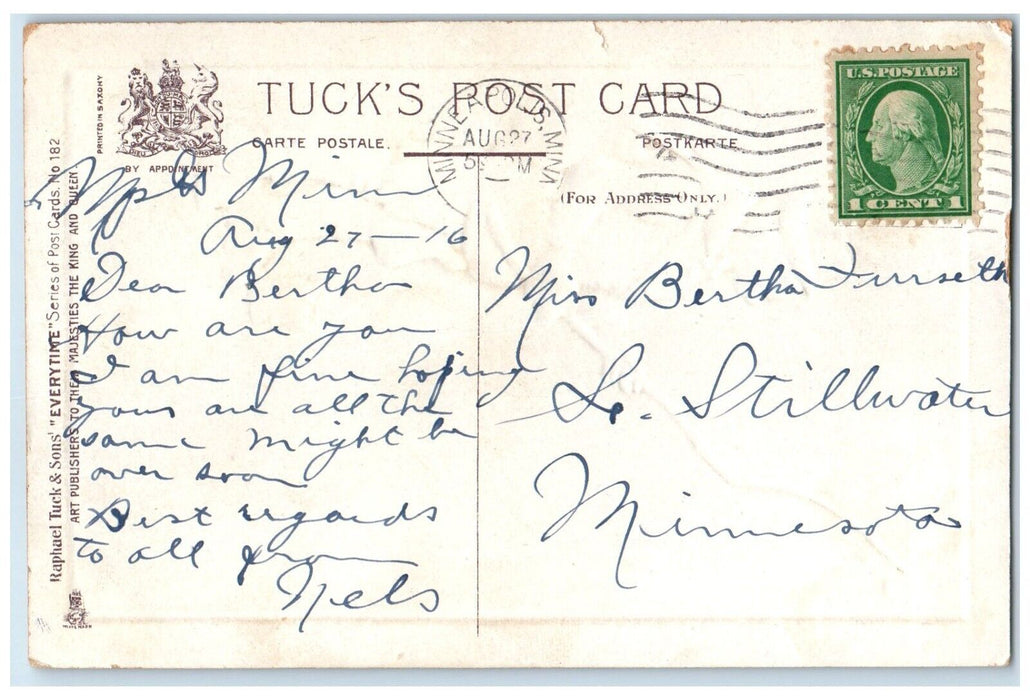 TUCK'S POST CARD
CARTE POSTALE.
POSTKARTE
(FOR ADDRESS ONLY.)
PRINTED IN SAXONY
BY APPOINTMENT
Raphael Tuck & Sons' "EVERYTIME" Series of Post Cards. No 182
ART PUBLISHERS TO THEIR MAJESTIES THE KING AND QUEEN
MINNEAPOLIS, MINN
AUG 27
5 PM
U.S. POSTAGE
1 CENT 1
Mpls Minn
Aug 27-16
Dear Bertha
How are you
I am fine hoping
yous are all the
same might be
over soon
Best regards
to all from
Nels
Miss Bertha Furseth
So. Stillwater
Minnesota